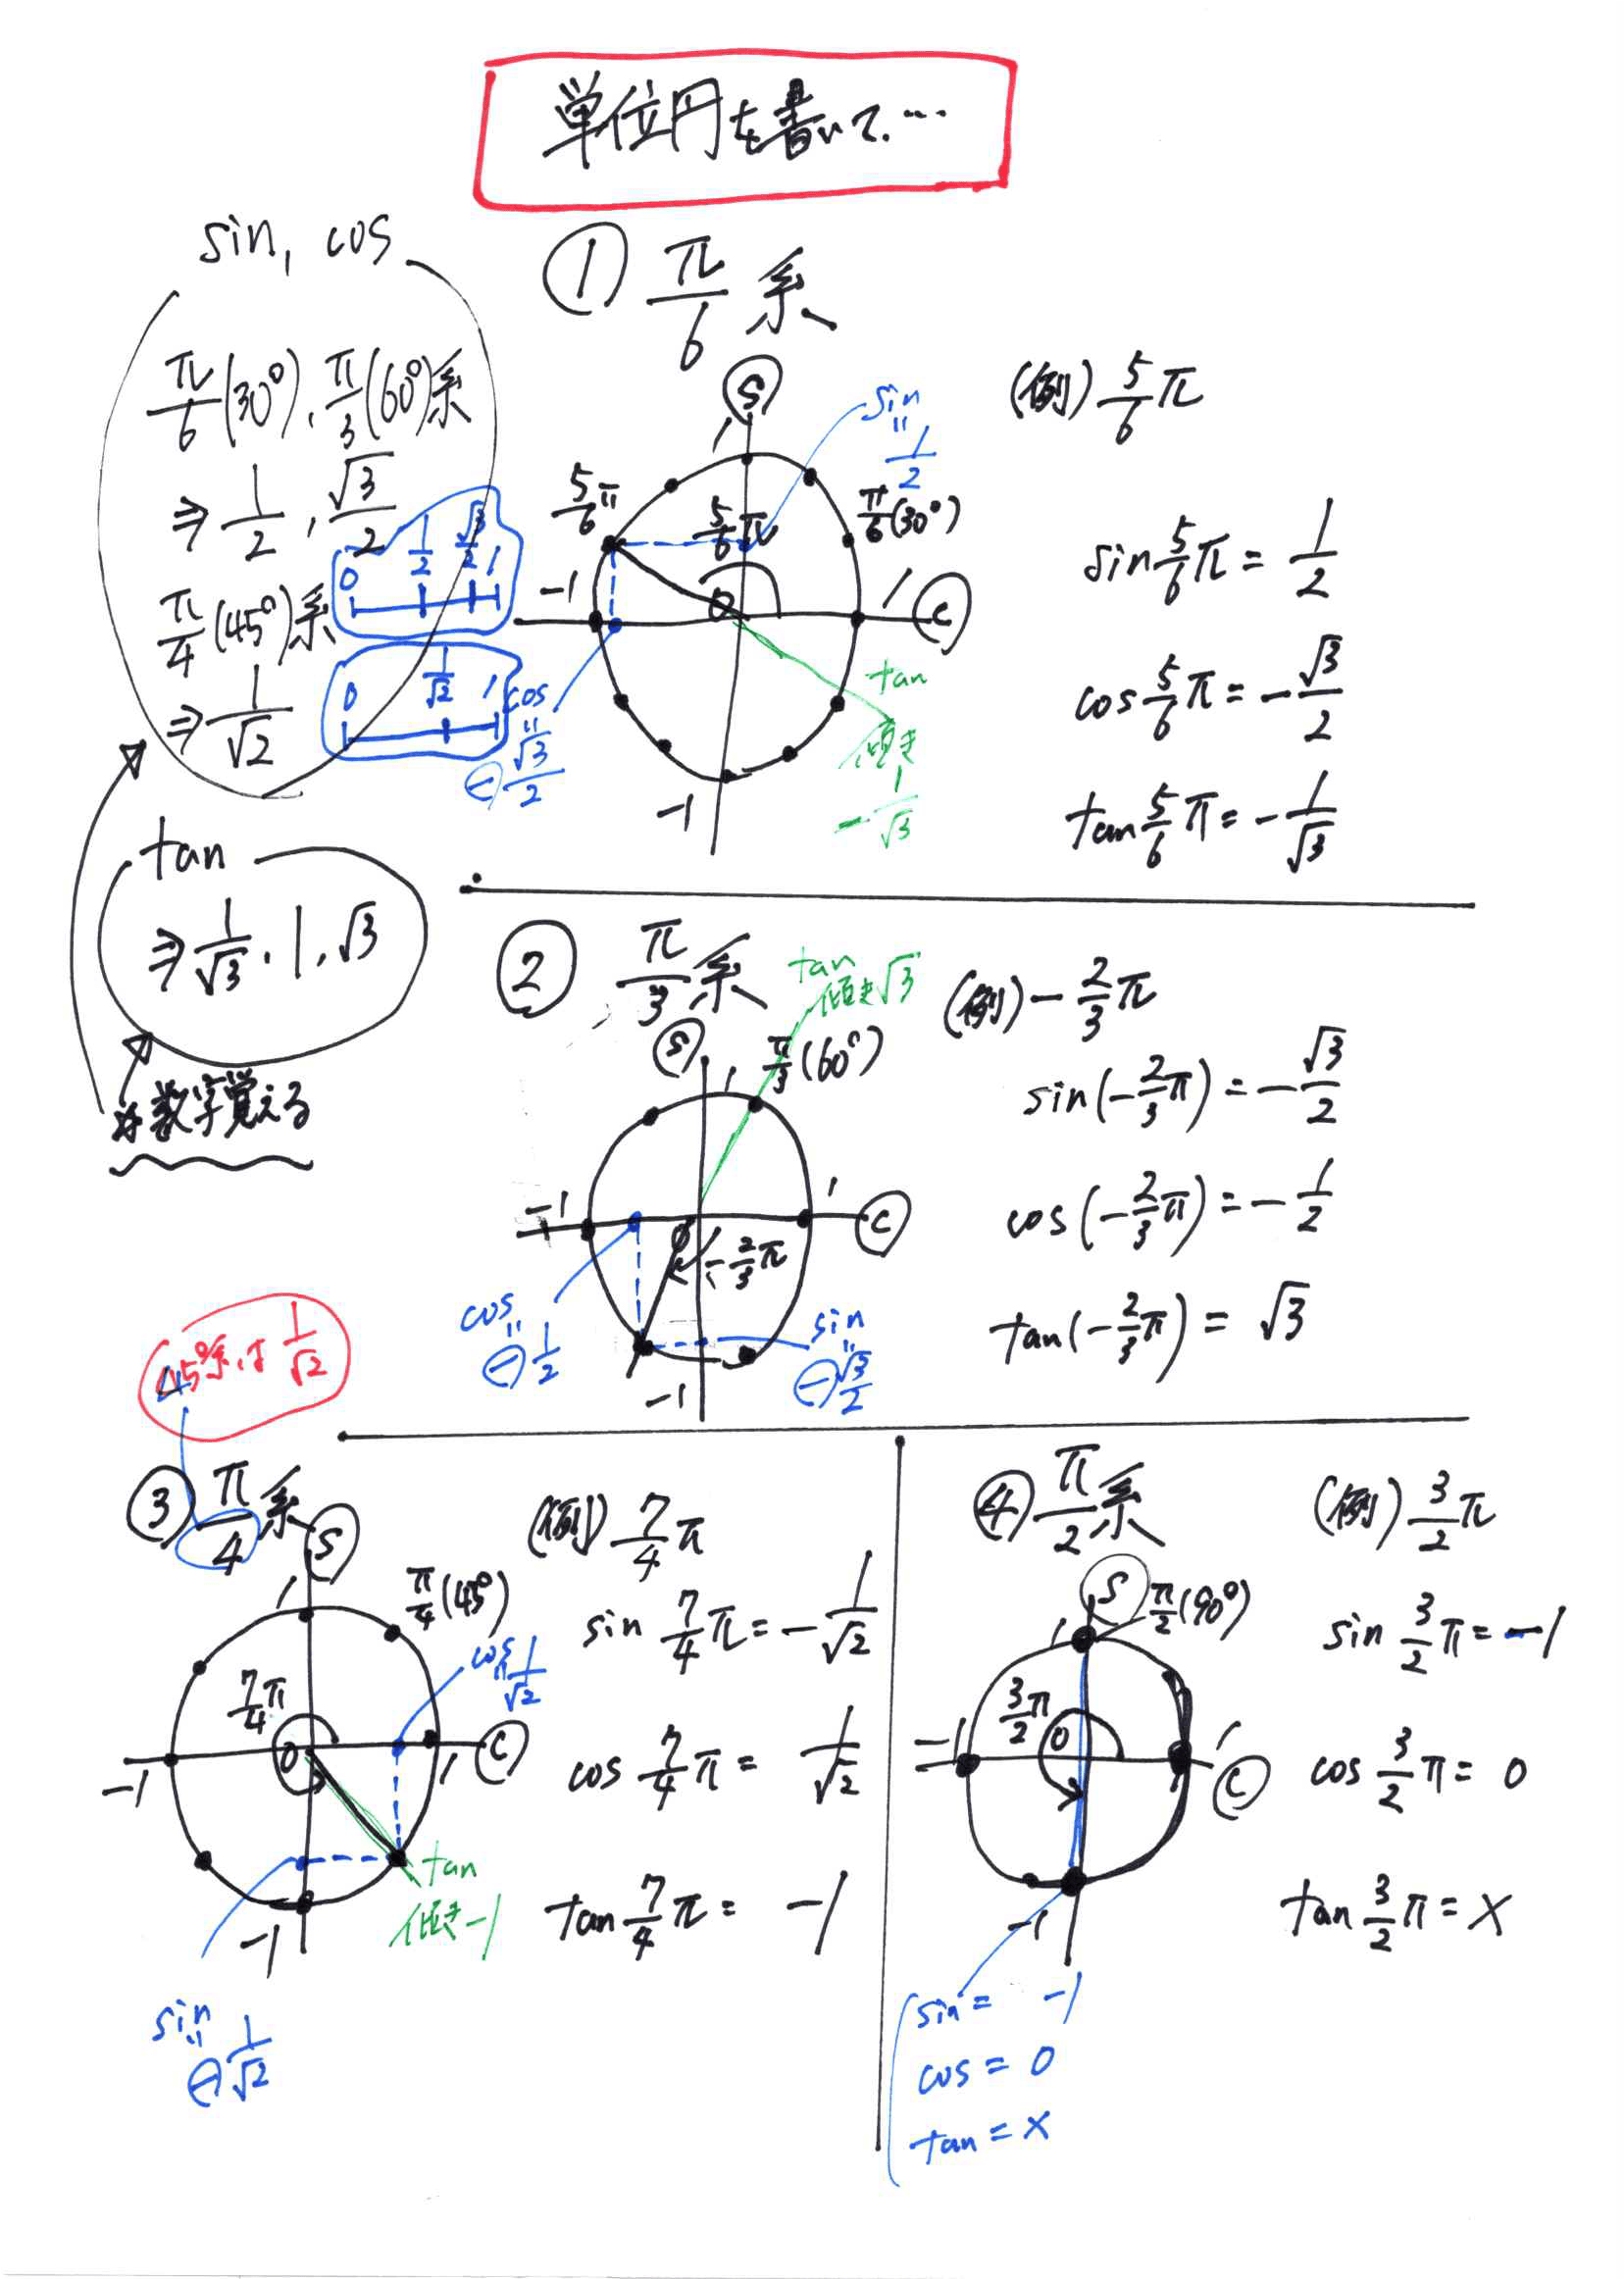 単位円を書いて…
sin, cos
π/6(30°), π/3(60°)系
⇒ 1/2, √3/2
0 1/2 √3/2 1
π/4(45°)系
⇒ 1/√2
0 1/√2 1
tan
⇒ 1/√3, 1, √3
※数字覚える
① π/6系
S
1
sin
=
1/2
5/6π
5/6π
π/6(30°)
-1
O
1
C
cos
=
⊖√3/2
tan
傾き
-1/√3
-1
(例) 5/6π
sin5/6π = 1/2
cos5/6π = -√3/2
tan5/6π = -1/√3
② π/3系
tan
傾き√3
S
1
π/3(60°)
-1
O
1
C
-2/3π
cos
=
⊖1/2
sin
=
⊖√3/2
-1
(例) -2/3π
sin(-2/3π) = -√3/2
cos(-2/3π) = -1/2
tan(-2/3π) = √3
45°系は 1/√2
③ π/4系
S
1
π/4(45°)
cos
=
1/√2
7/4π
-1
O
1
C
tan
傾き-1
-1
sin
=
⊖1/√2
(例) 7/4π
sin 7/4π = -1/√2
cos 7/4π = 1/√2
tan 7/4π = -1
④ π/2系
S
π/2(90°)
1
3/2π
-1
O
1
C
-1
sin = -1
cos = 0
tan = ×
(例) 3/2π
sin 3/2π = -1
cos 3/2π = 0
tan 3/2π = ×